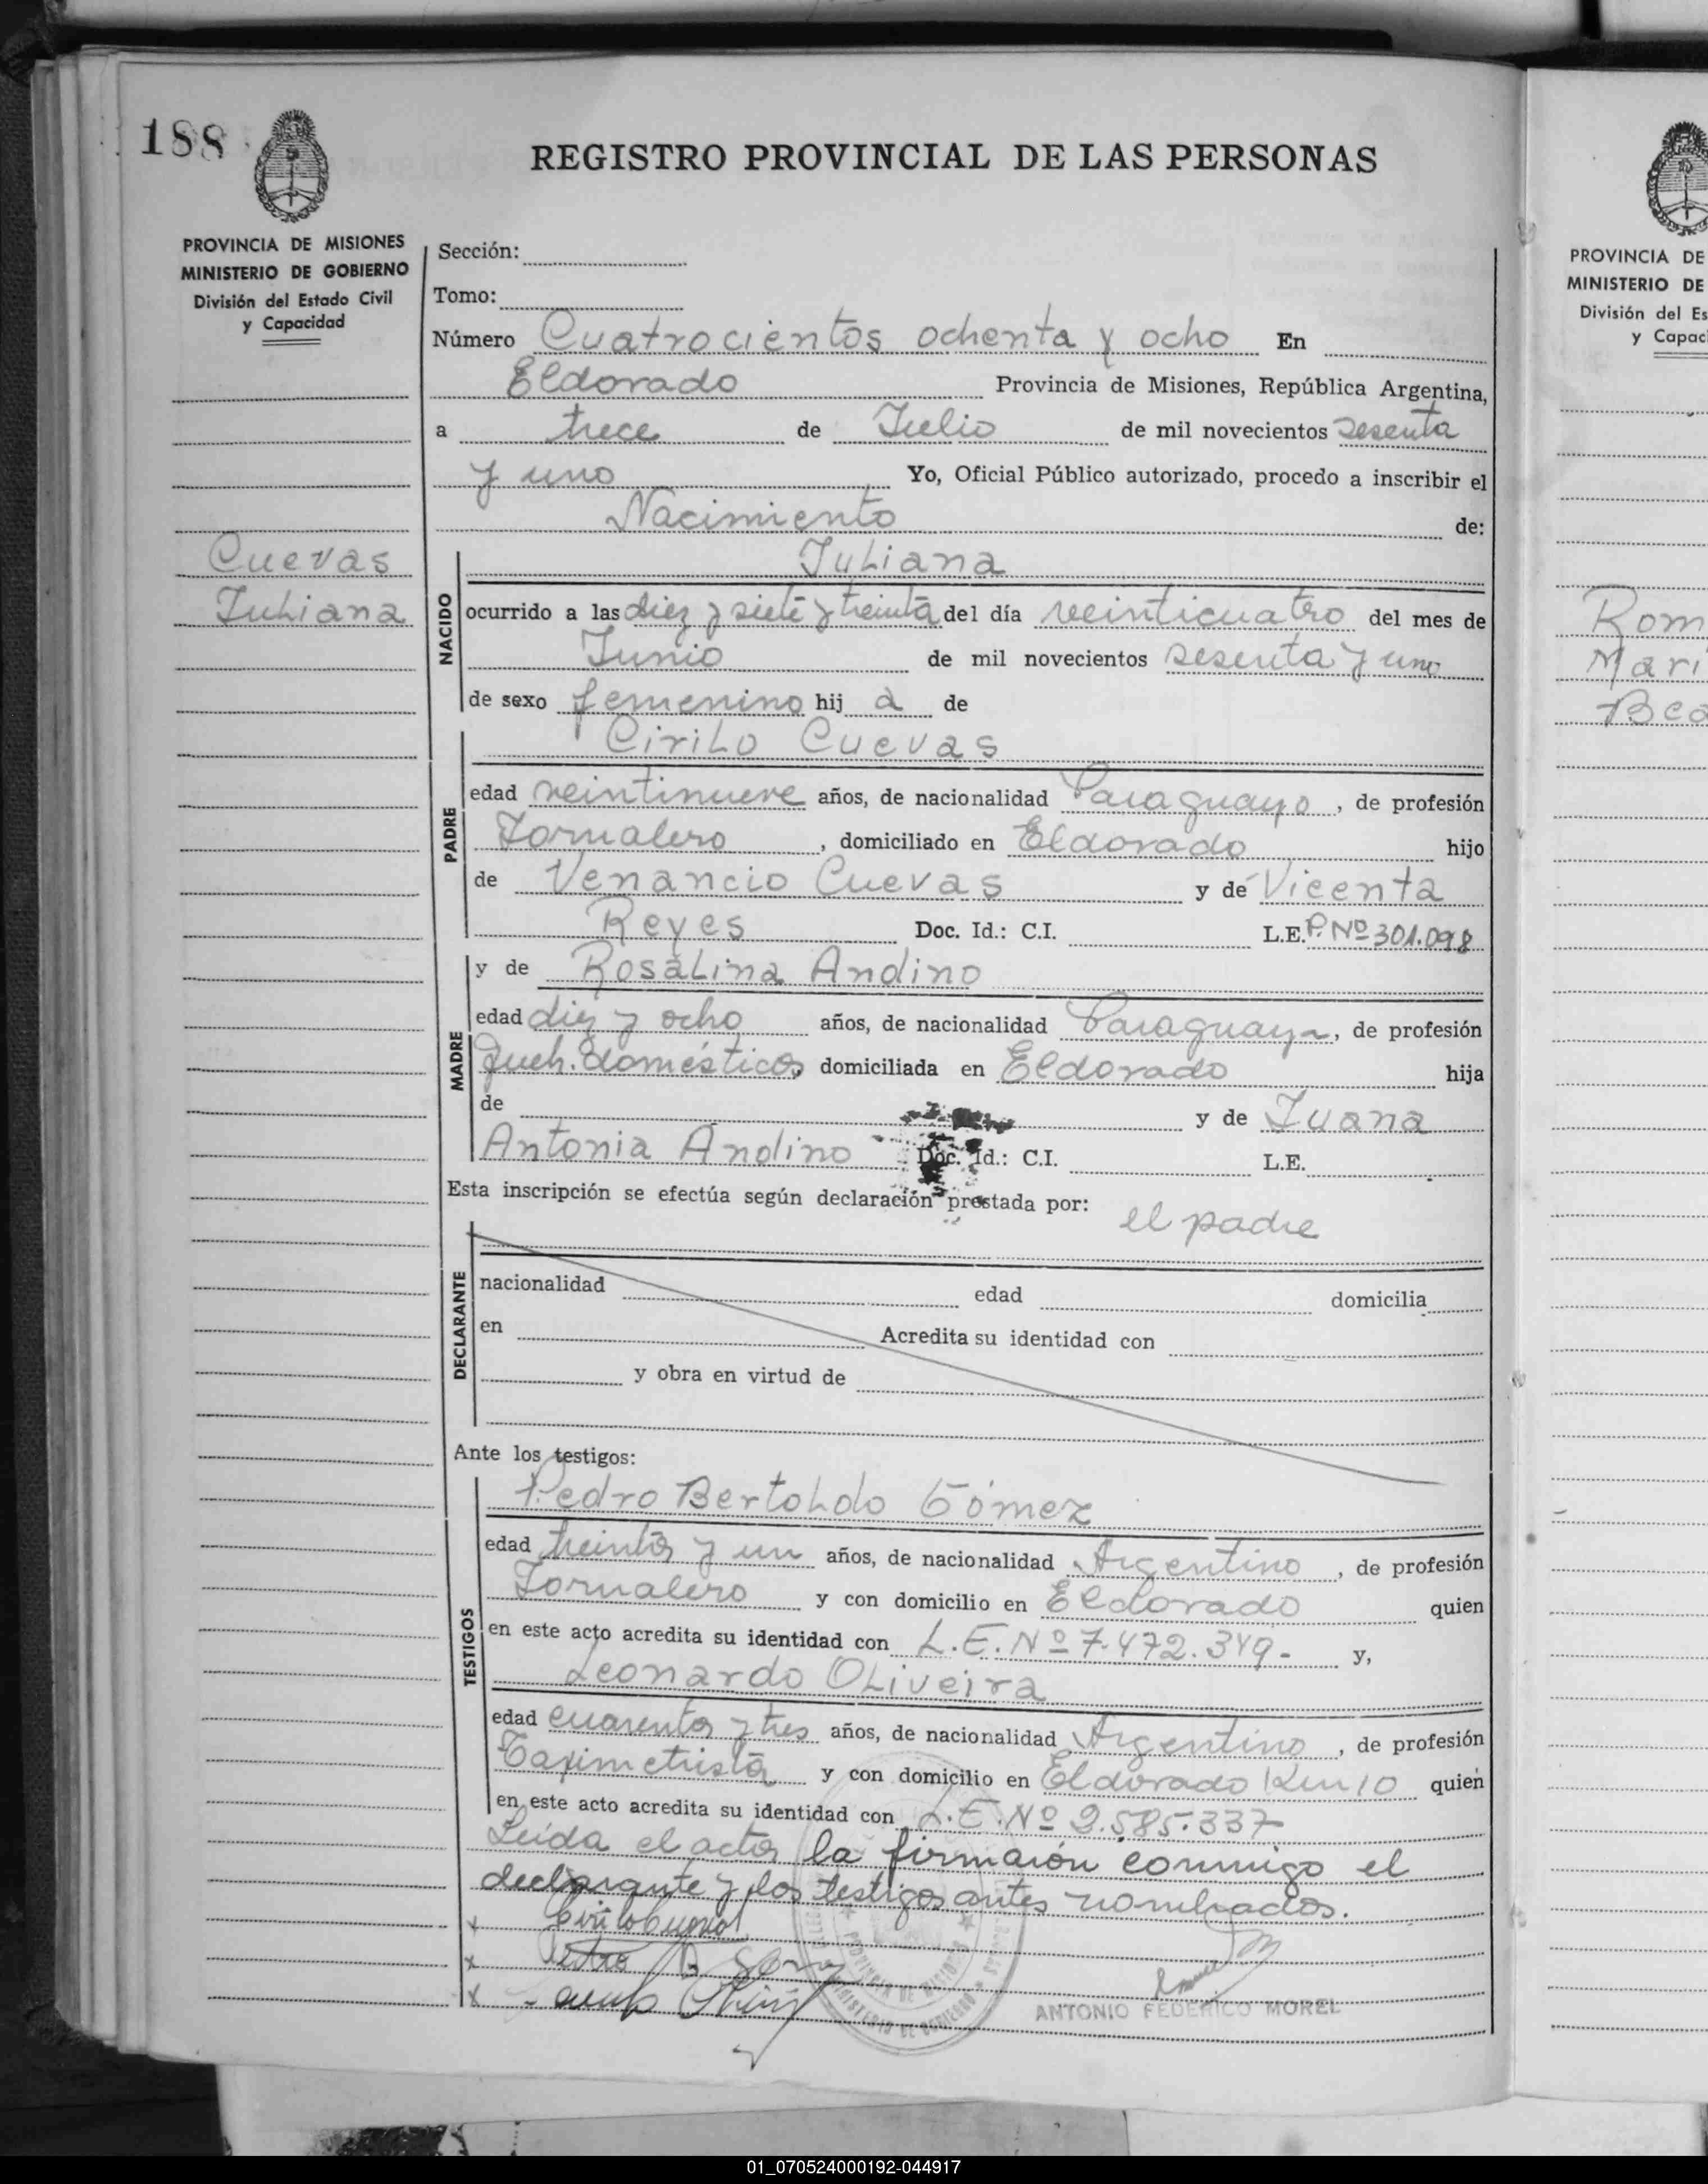 188
REGISTRO PROVINCIAL DE LAS PERSONAS
PROVINCIA DE MISIONES
MINISTERIO DE GOBIERNO
División del Estado Civil
y Capacidad
Cuevas
Juliana
Sección:
Tomo:
Número Cuatrocientos ochenta y ocho En
Eldorado Provincia de Misiones, República Argentina,
a trece de Julio de mil novecientos sesenta
y uno Yo, Oficial Público autorizado, procedo a inscribir el
Nacimiento de:
NACIDO
Juliana
ocurrido a las diez y siete y treinta del día veinticuatro del mes de
Junio de mil novecientos sesenta y uno
de sexo femenino hij a de
PADRE
Cirilo Cuevas
edad veintinueve años, de nacionalidad Paraguayo, de profesión
Jornalero, domiciliado en Eldorado hijo
de Venancio Cuevas y de Vicenta
Reyes Doc. Id.: C.I. L.E. P. Nº 301.098
MADRE
y de Rosalina Andino
edad diez y ocho años, de nacionalidad Paraguaya, de profesión
Queh. domésticos domiciliada en Eldorado hija
de y de Juana
Antonia Andino Doc. Id.: C.I. L.E.
Esta inscripción se efectúa según declaración prestada por: el padre
DECLARANTE
nacionalidad edad domicilia
en Acredita su identidad con
y obra en virtud de
Ante los testigos:
TESTIGOS
Pedro Bertoldo Gómez
edad treinta y un años, de nacionalidad Argentino, de profesión
Jornalero y con domicilio en Eldorado quien
en este acto acredita su identidad con L.E. Nº 7.472.349.- y,
Leonardo Oliveira
edad cuarenta y tres años, de nacionalidad Argentino, de profesión
Taximetrista y con domicilio en Eldorado Km 10 quien
en este acto acredita su identidad con L.E. Nº 2.585.337
Leída el acta la firmaron conmigo el
declarante y los testigos antes nombrados.
x Cirilo Cuevas
x Pedro B Gom
x
PROVINCIA DE MISIONES
MINISTERIO DE GOBIERNO
ANTONIO FEDERICO MOREL
PROVINCIA DE
MINISTERIO DE
División del Es
y Capac
Rom
Mari
Bea
01_070524000192-044917